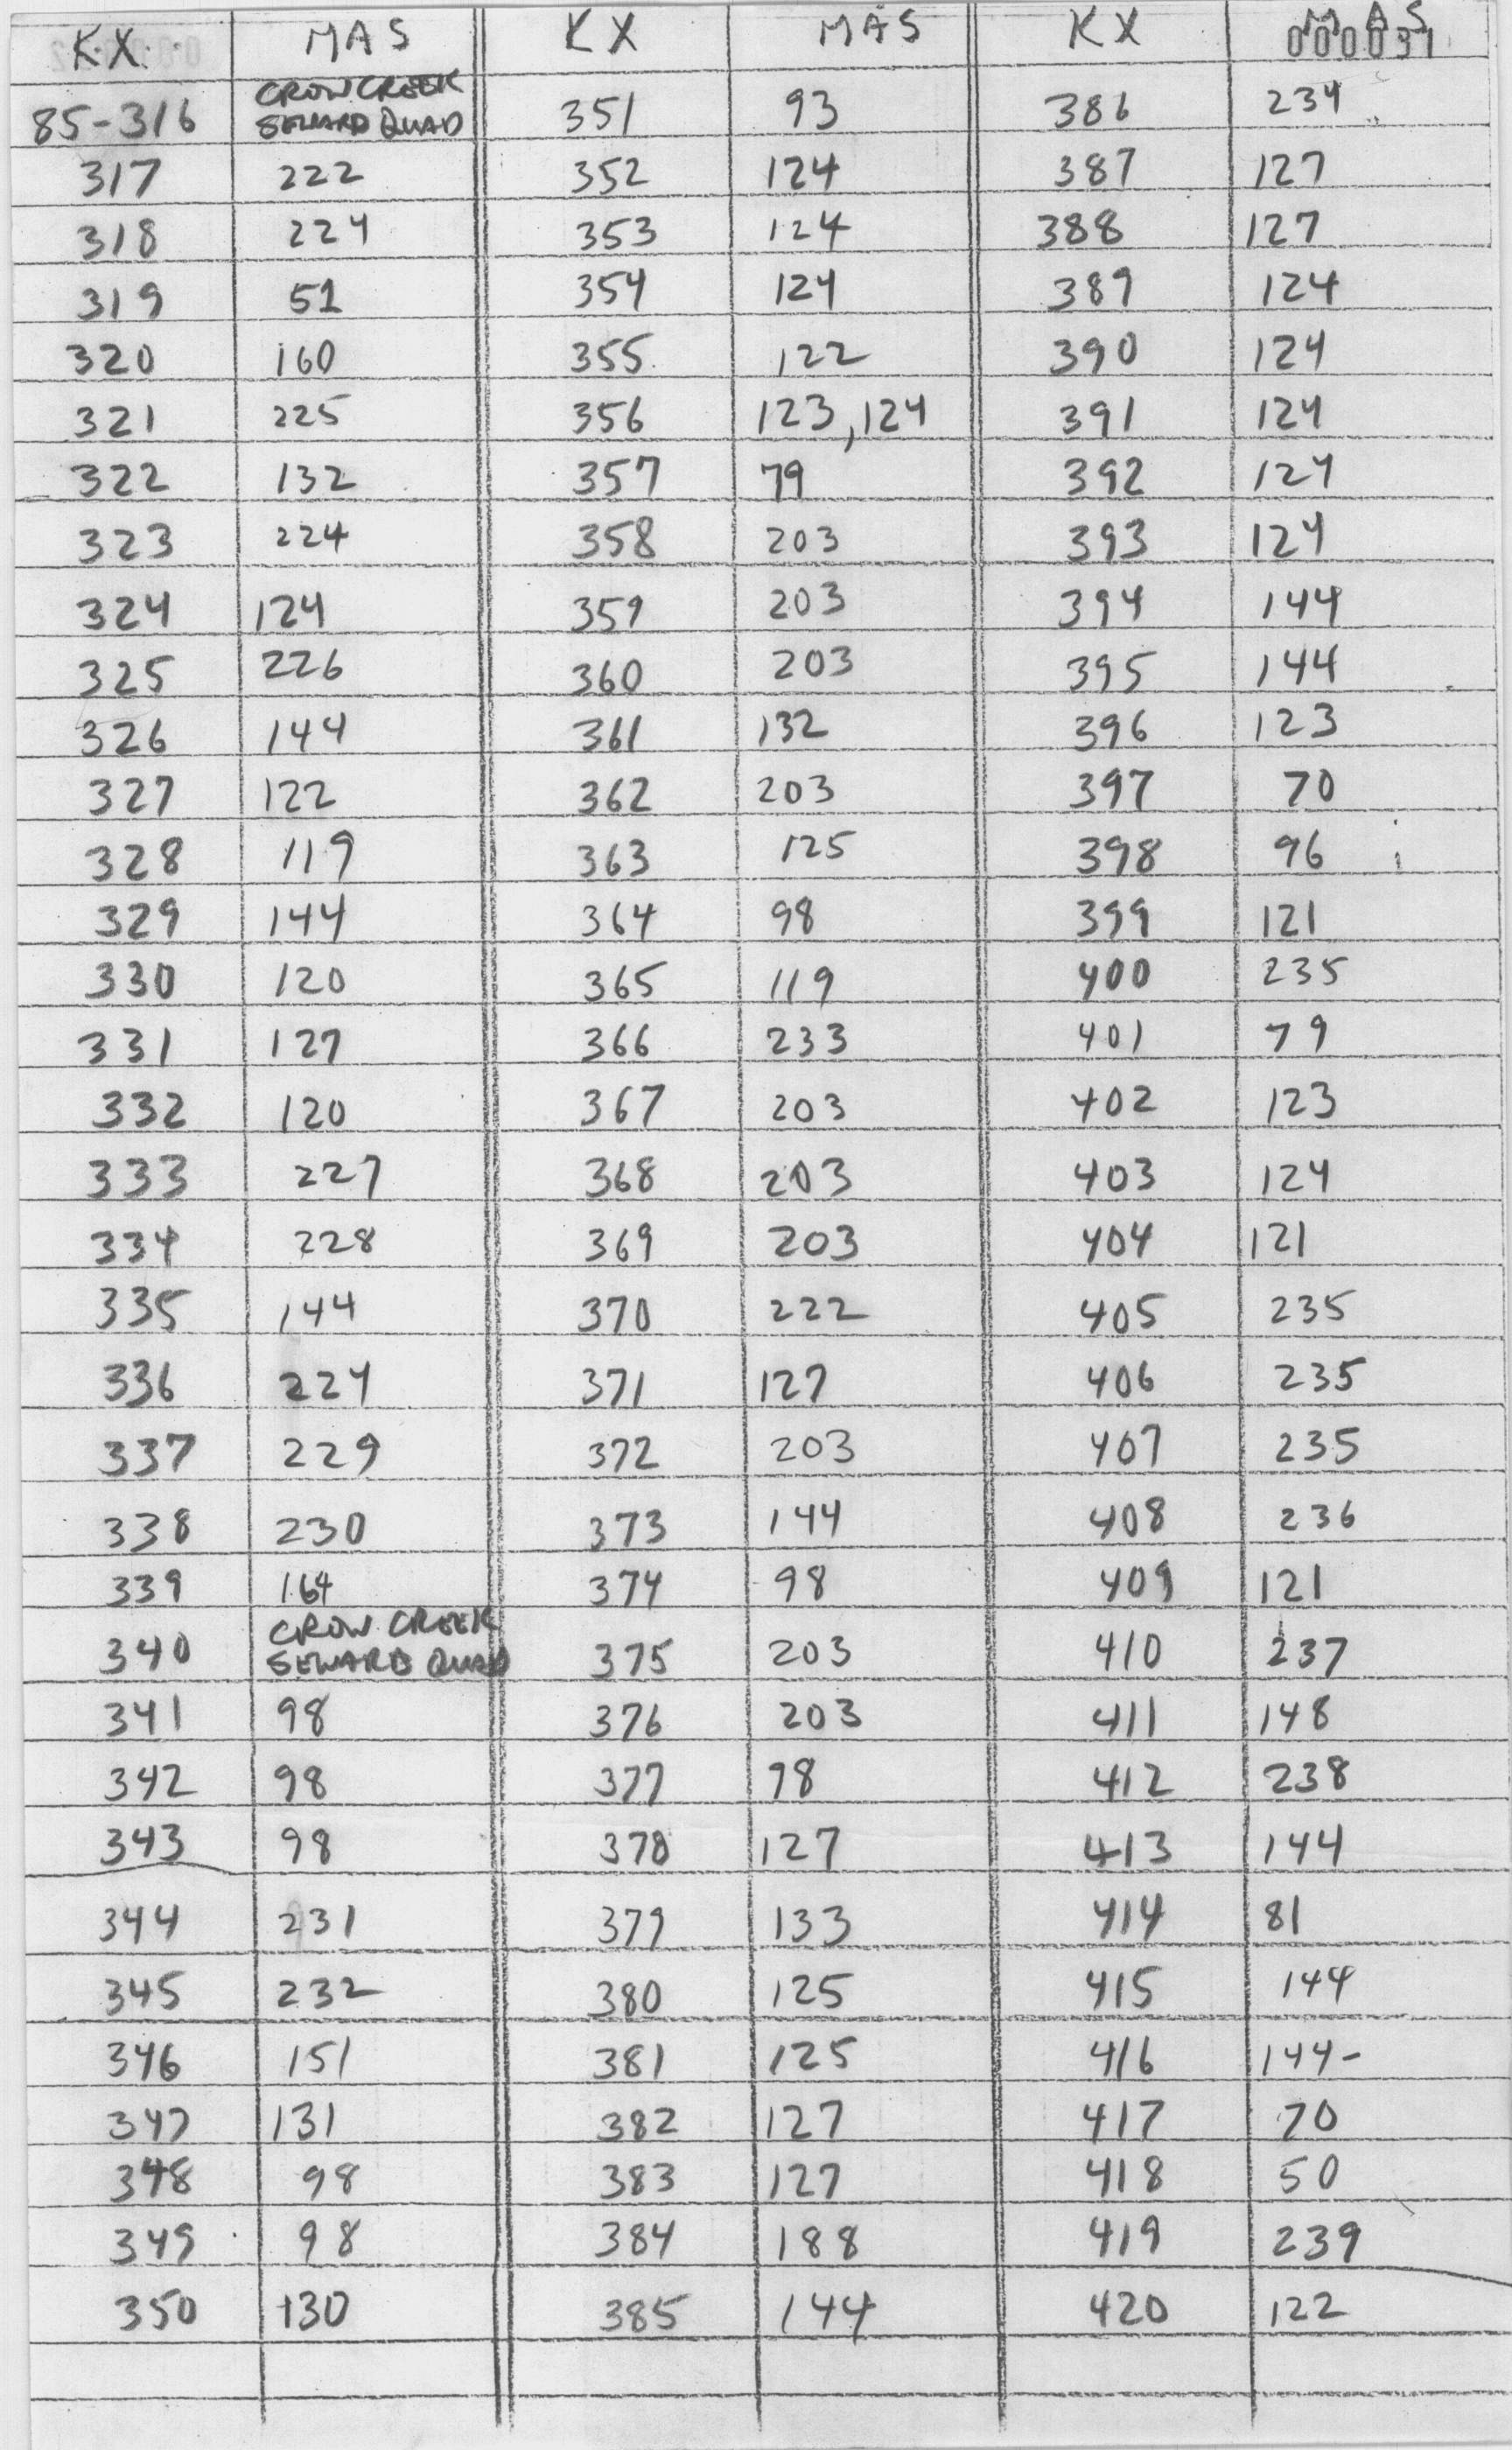 KX MAS KX MAS KX MAS
000031
85-316 CROW CREEK SEWARD QUAD 351 93 386 234
317 222 352 124 387 127
318 224 353 124 388 127
319 51 354 124 389 124
320 160 355 122 390 124
321 225 356 123,124 391 124
322 132 357 79 392 124
323 224 358 203 393 124
324 124 359 203 394 144
325 226 360 203 395 144
326 144 361 132 396 123
327 122 362 203 397 70
328 119 363 125 398 96
329 144 364 98 399 121
330 120 365 119 400 235
331 127 366 233 401 79
332 120 367 203 402 123
333 227 368 203 403 124
334 228 369 203 404 121
335 144 370 222 405 235
336 224 371 127 406 235
337 229 372 203 407 235
338 230 373 144 408 236
339 164 374 98 409 121
340 CROW CREEK SEWARD QUAD 375 203 410 237
341 98 376 203 411 148
342 98 377 98 412 238
343 98 378 127 413 144
344 231 379 133 414 81
345 232 380 125 415 144
346 151 381 125 416 144-
347 131 382 127 417 70
348 98 383 127 418 50
349 98 384 188 419 239
350 130 385 144 420 122